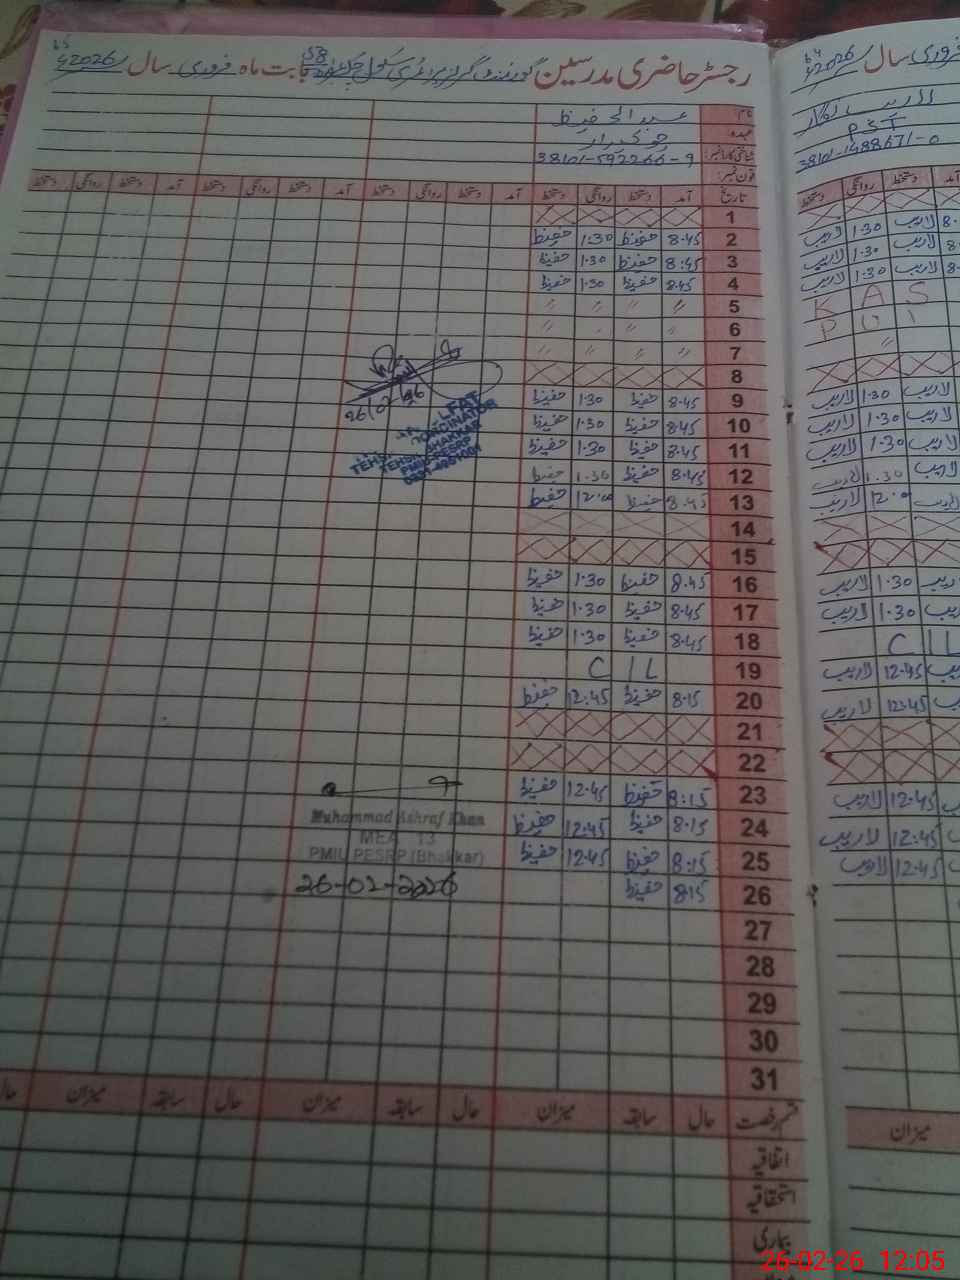 رجسٹر حاضری مدرسین گورنمنٹ گرلز پرائمری سکول بابت ماہ فروری سال 2026ء
نام: عبدالحفیظ
عہدہ چوکیدار
شناختی کارڈ نمبر: 38101-592266-9
فون نمبر:
تاریخ آمد دستخط روانگی دستخط آمد دستخط روانگی دستخط آمد دستخط روانگی دستخط آمد دستخط روانگی دستخط
1
2 8.45 حفیظ 1:30 حفیظ
3 8:45 حفیظ 1.30 حفیظ
4 8.45 حفیظ 1.30 حفیظ
5 〃 〃 〃 〃
6 〃 〃 〃
7 〃 〃 〃 〃
8
9 8.45 حفیظ 1.30 حفیظ
10 8.45 حفیظ 1.30 حفیظ
11 8.45 حفیظ 1.30 حفیظ
12 8.45 حفیظ 1.30 حفیظ
13 8.45 حفیظ 12.00 حفیظ
14
15
16 8.45 حفیظ 1.30 حفیظ
17 8.45 حفیظ 1.30 حفیظ
18 8.45 حفیظ 1.30 حفیظ
19 C IL
20 8.15 حفیظ 12:45 حفیظ
21
22
23 8:15 حفیظ 12.45 حفیظ
24 8.15 حفیظ 12:45 حفیظ
25 8:15 حفیظ 12.45 حفیظ
26 8.15 حفیظ
27
28
29
30
31
قسم رخصت حال سابقہ میزان حال سابقہ میزان حال سابقہ میزان حال
اتفاقیہ
استحقاقیہ
بیماری
PMIU-PESRP
Muhammad Ashraf Khan
MEA 13
PMIU PESRP (Bhakkar)
26-02-2026
فروری سال 2026ء
PST
38101-1488671-0
آمد دستخط روانگی دستخط
8. لاریب 1.30 لاریب
8. لاریب 1.30 لاریب
8. لاریب 1.30 لاریب
K A S
P U I
〃
لاریب 1.30 لاریب
لاریب 1.30 لاریب
لاریب 1.30 لاریب
لاریب 1.30 لاریب
لاریب 12.00 لاریب
لاریب 1.30 لاریب
لاریب 1.30 لاریب
C IL
لاریب 12.45 لاریب
لاریب 12:45 لاریب
12.45 لاریب
12:45 لاریب
12.45 لاریب
میزان
26-02-26 12:05